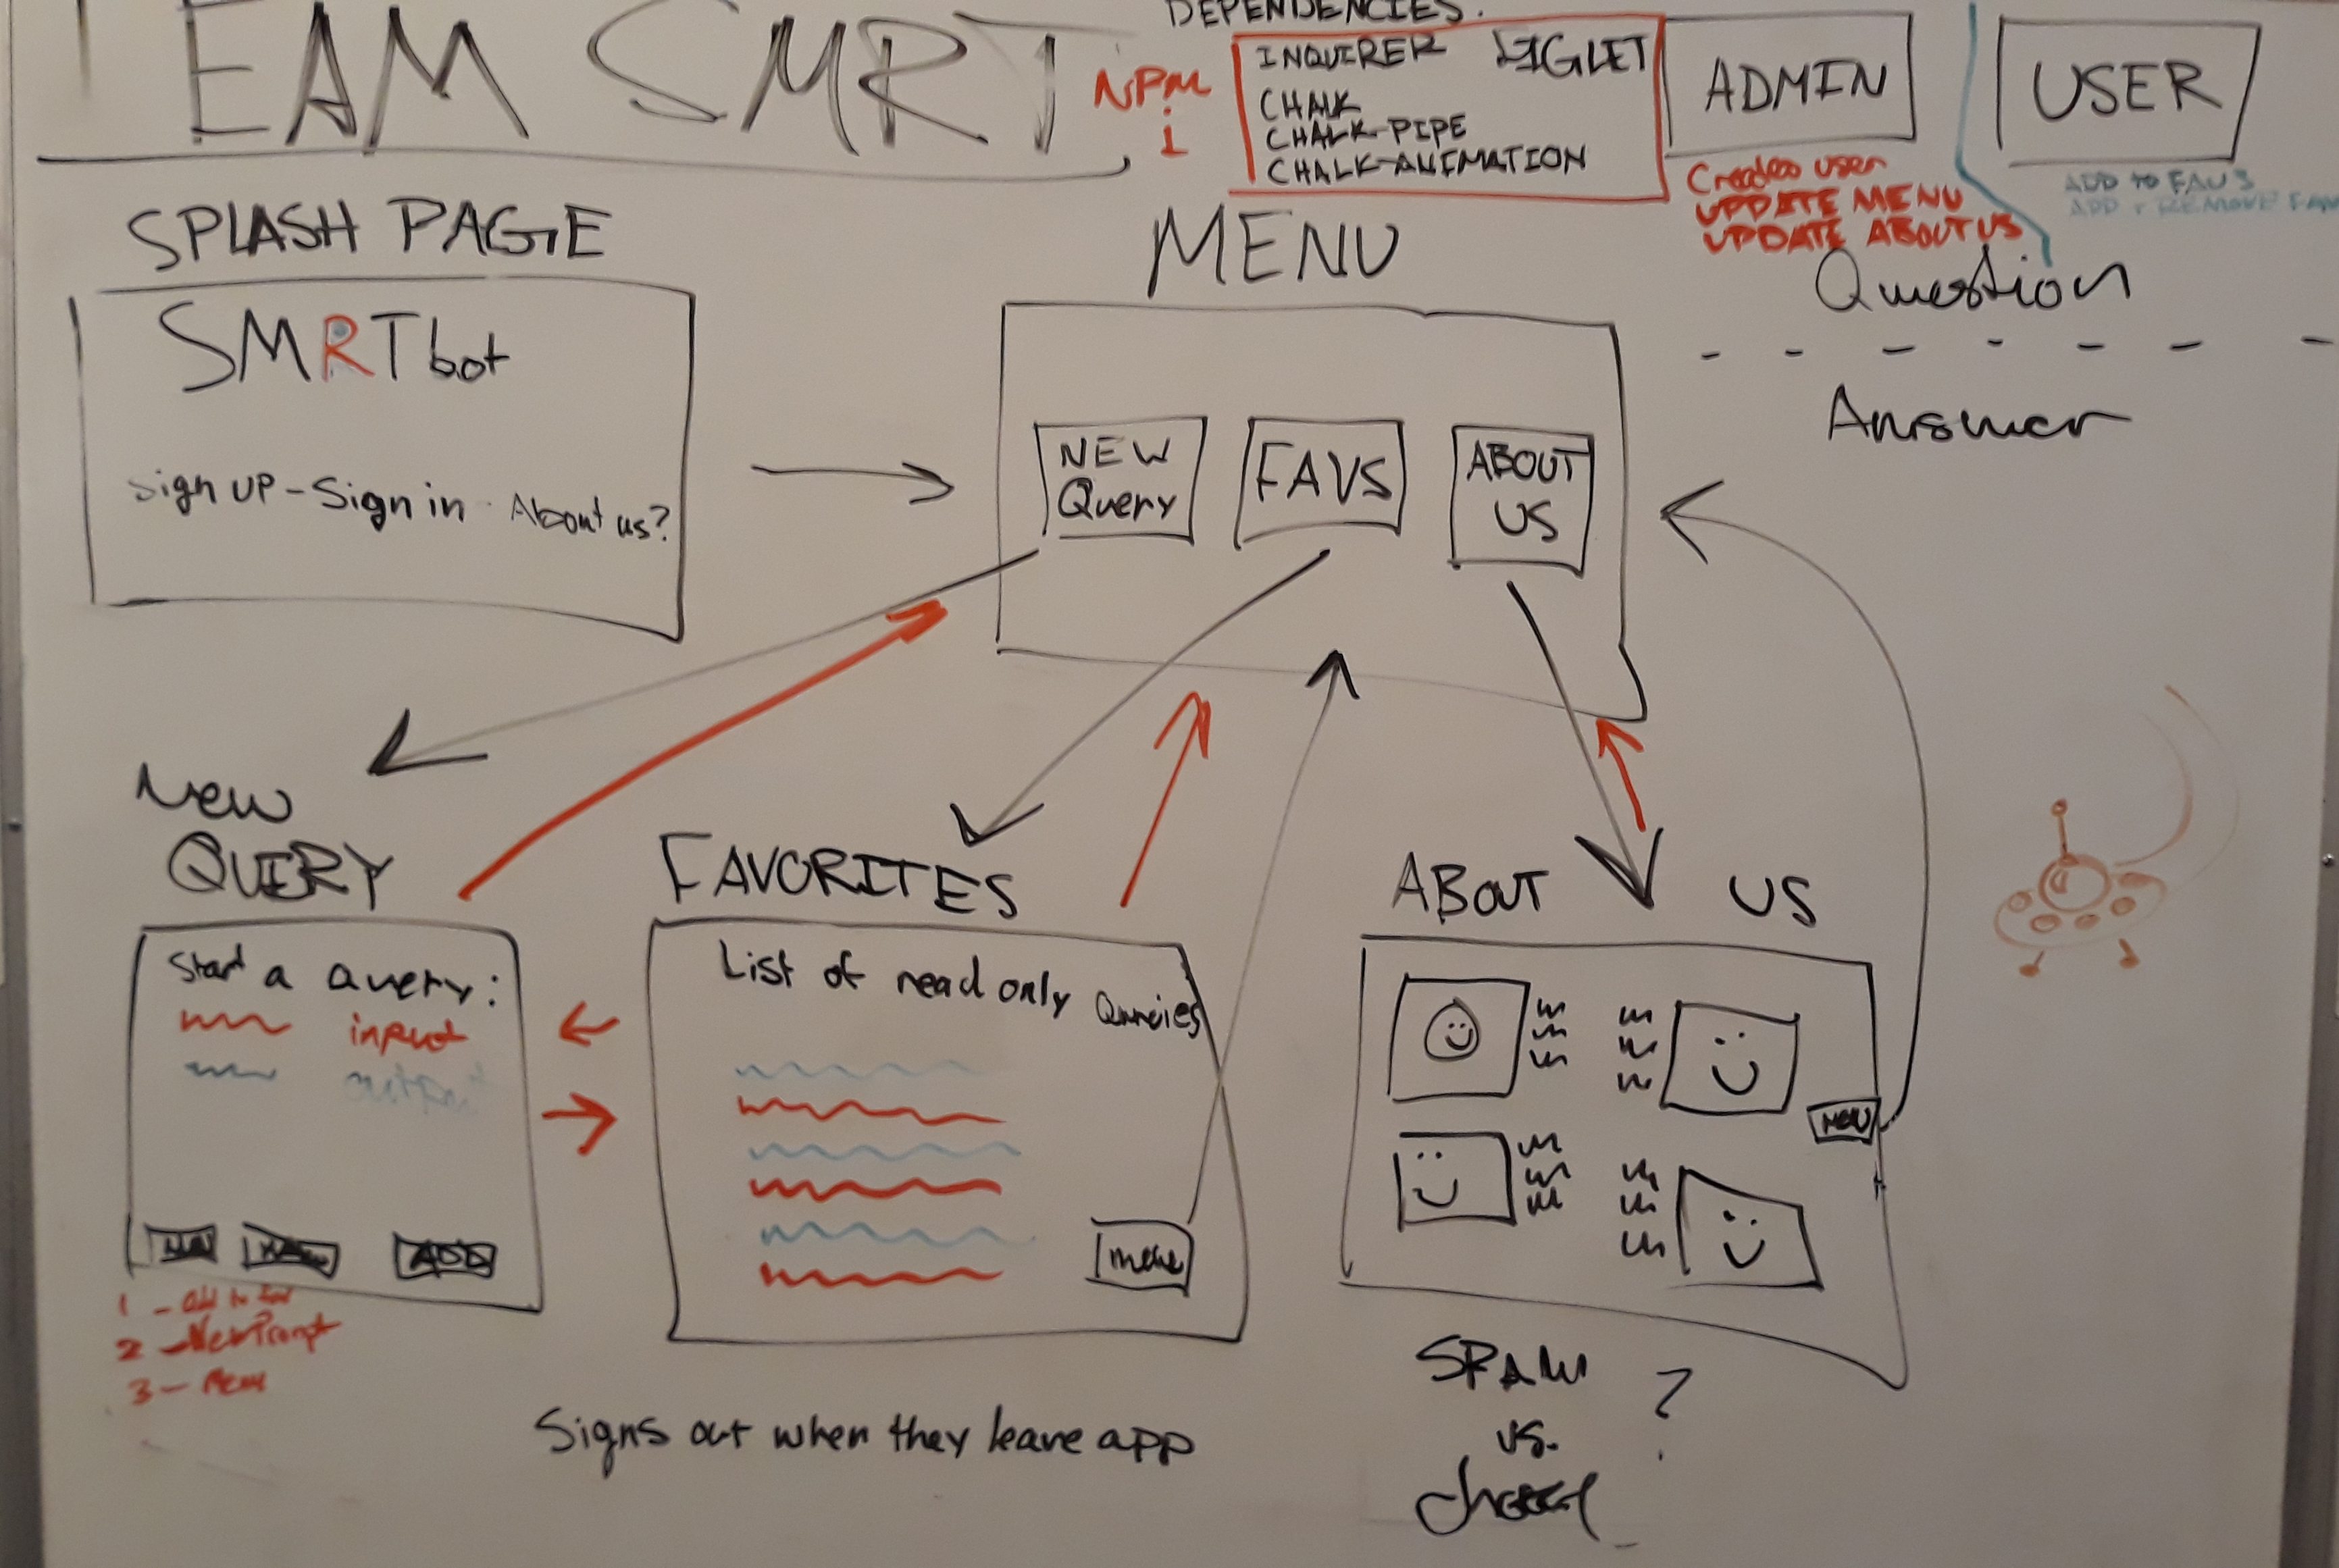 TEAM SMRT
DEPENDENCIES:
NPM
i
INQUIRER FIGLET
CHALK
CHALK-PIPE
CHALK-ANIMATION
ADMIN
Creates user
UPDATE MENU
UPDATE ABOUT US
USER
ADD to FAVS
ADD + REMOVE FAVS
SPLASH PAGE
SMRT bot
Sign UP - Sign in - About us?
MENU
NEW
Query
FAVS
ABOUT
US
Question
Answer
New
QUERY
Start a Query:
input
output
ADD
1 - Add to fav
2 - New Prompt
3 - Menu
FAVORITES
List of read only Queries
menu
ABOUT US
MENU
Signs out when they leave app
SPAM
vs.
?